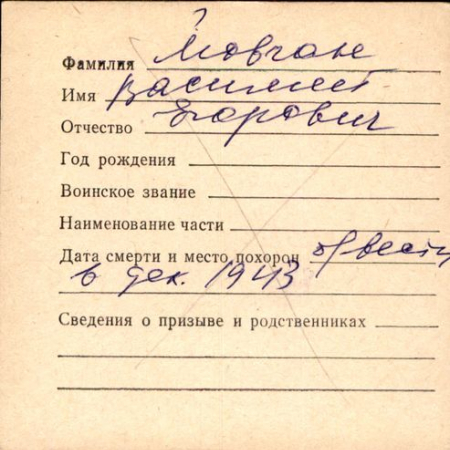 Фамилия Мовчан
Имя Василий
Отчество Егорович
Год рождения
Воинское звание
Наименование части
Дата смерти и место похорон б/вести
в дек. 1943
Сведения о призыве и родственниках